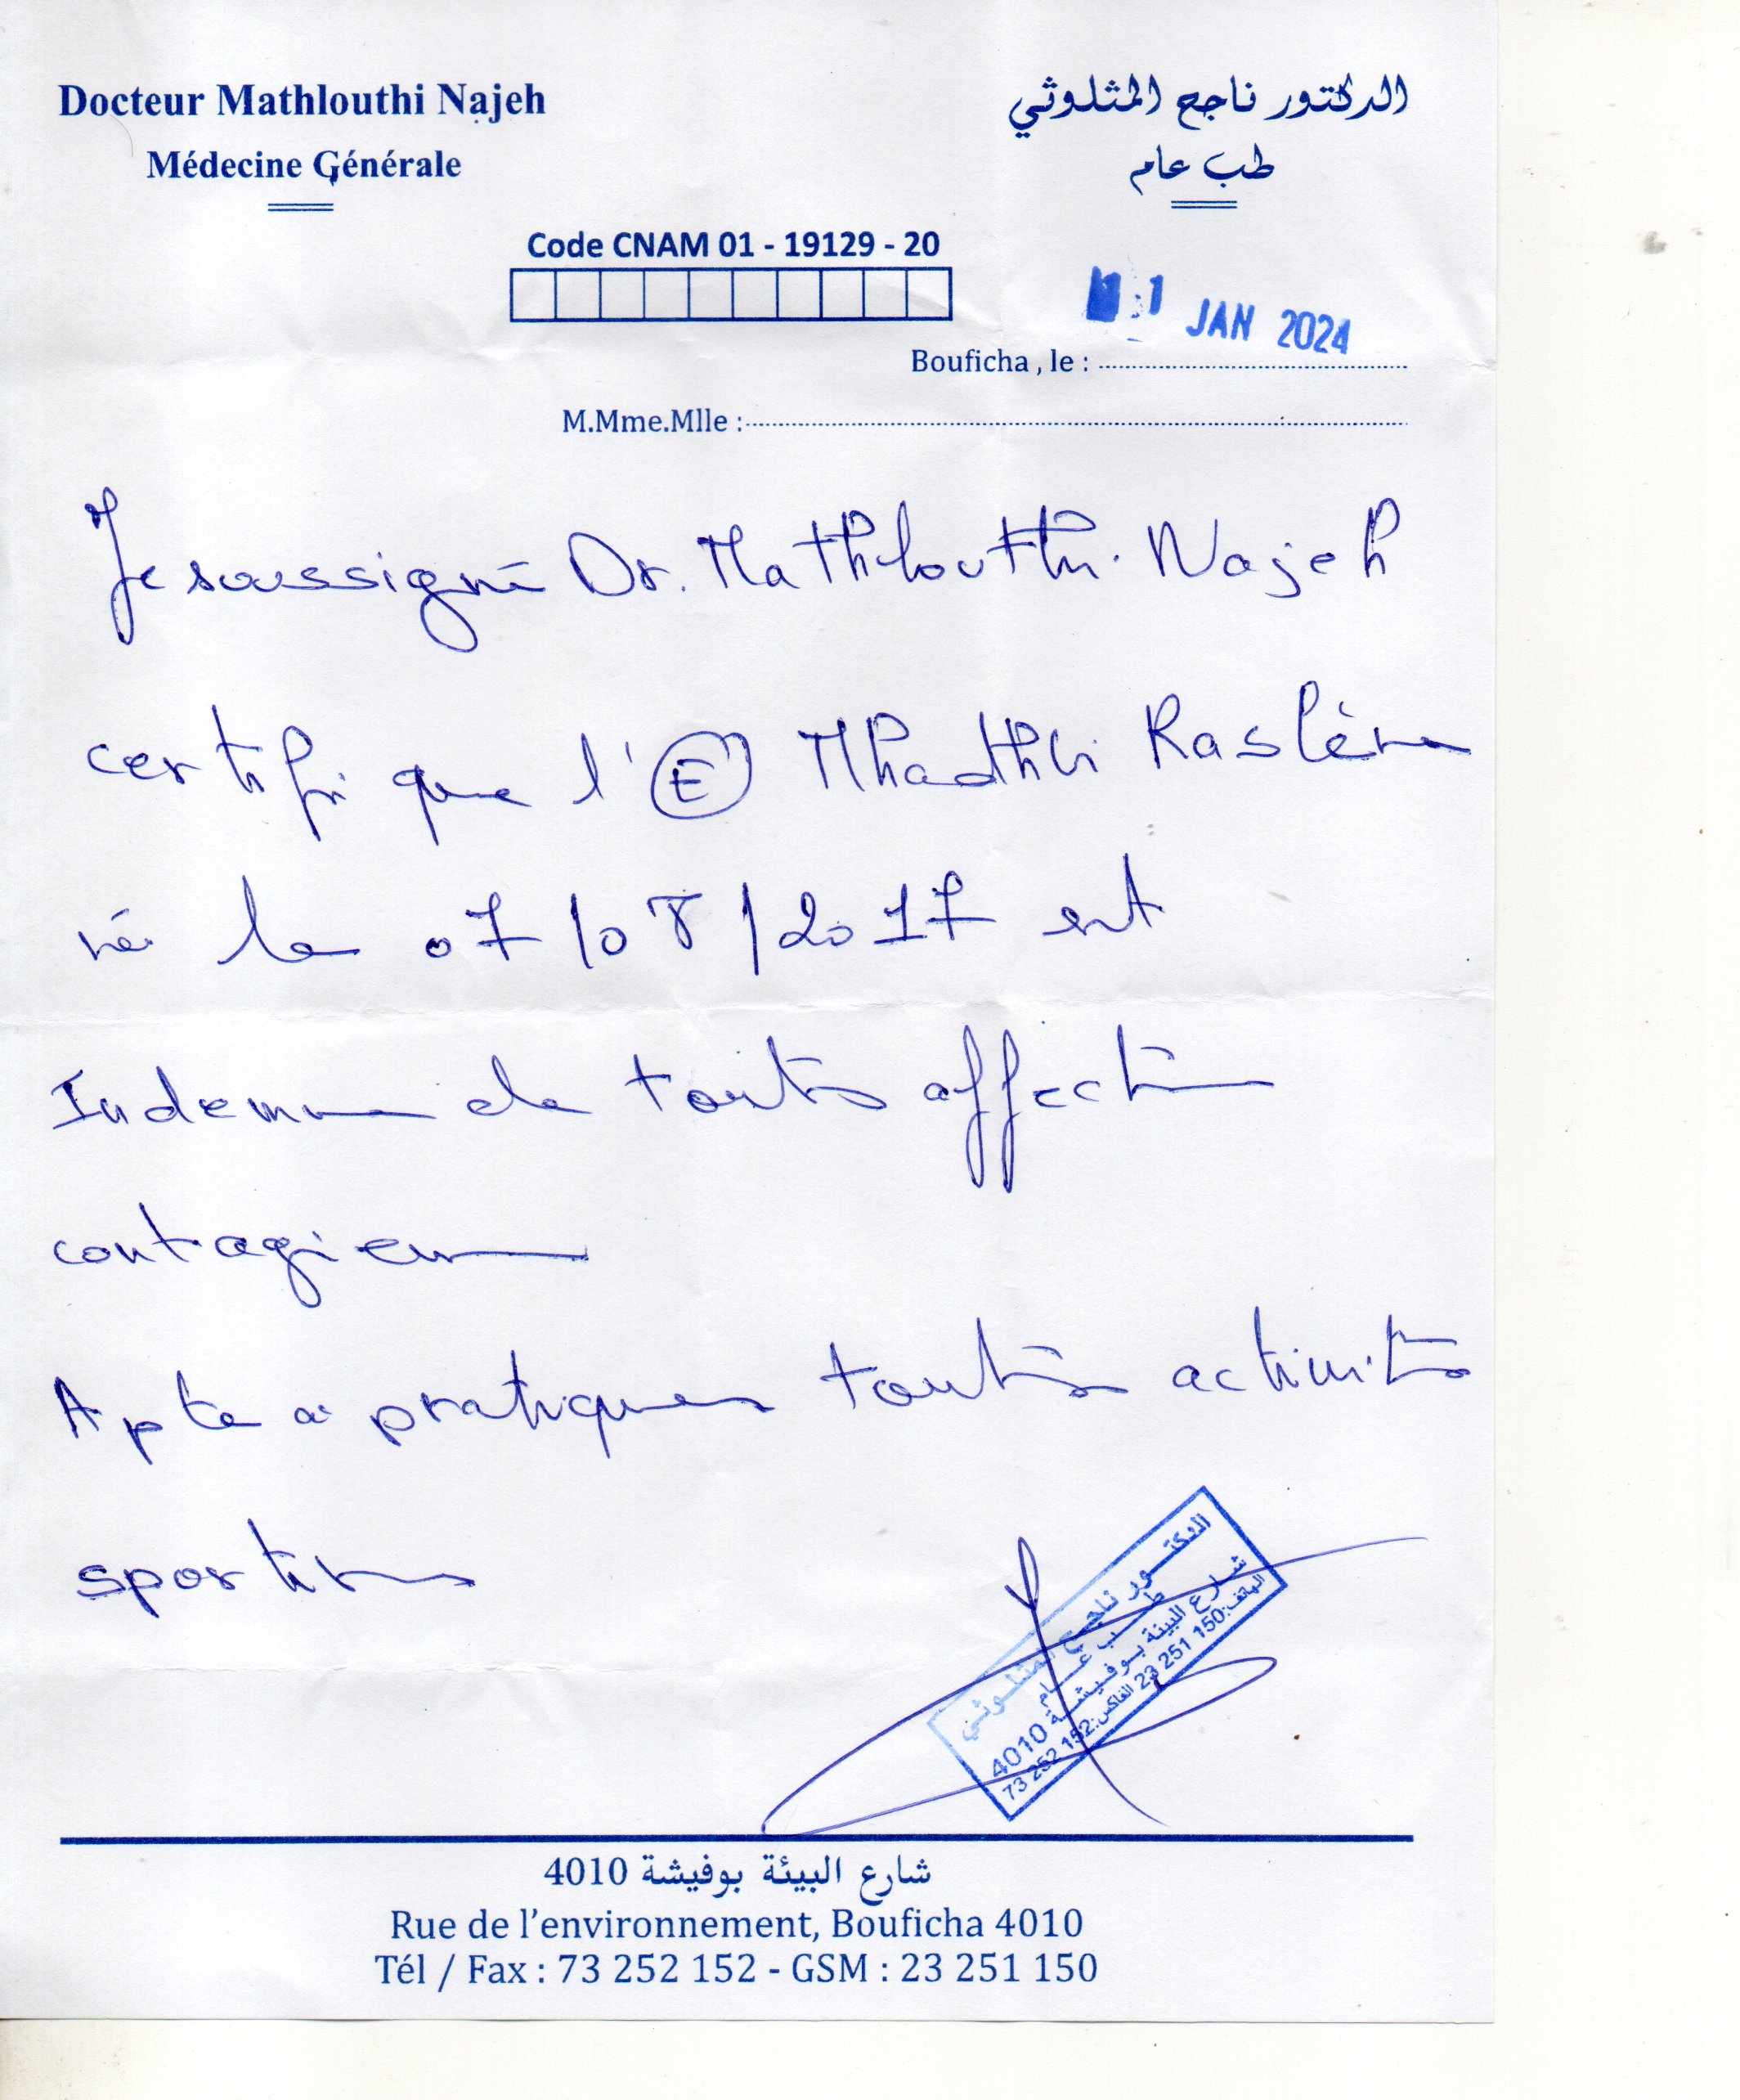 Docteur Mathlouthi Najeh
Médecine Générale
الدكتور ناجح المثلوثي
طب عام
Code CNAM 01 - 19129 - 20
1 JAN 2024
Bouficha , le :
M.Mme.Mlle :
Je soussigné Dr. Mathlouthi Najeh
certifie que l'E Mhadhbi Raslène
né le 07/08/2017 est
Indemne de toutes affection
contagieuse
Apte à pratiquer toutes activités
sportives
الدكتور ناجح المثلوثي
طب عام
شارع البيئة بوفيشة 4010
الهاتف:150 251 23 الفاكس:152 252 73
شارع البيئة بوفيشة 4010
Rue de l'environnement, Bouficha 4010
Tél / Fax : 73 252 152 - GSM : 23 251 150